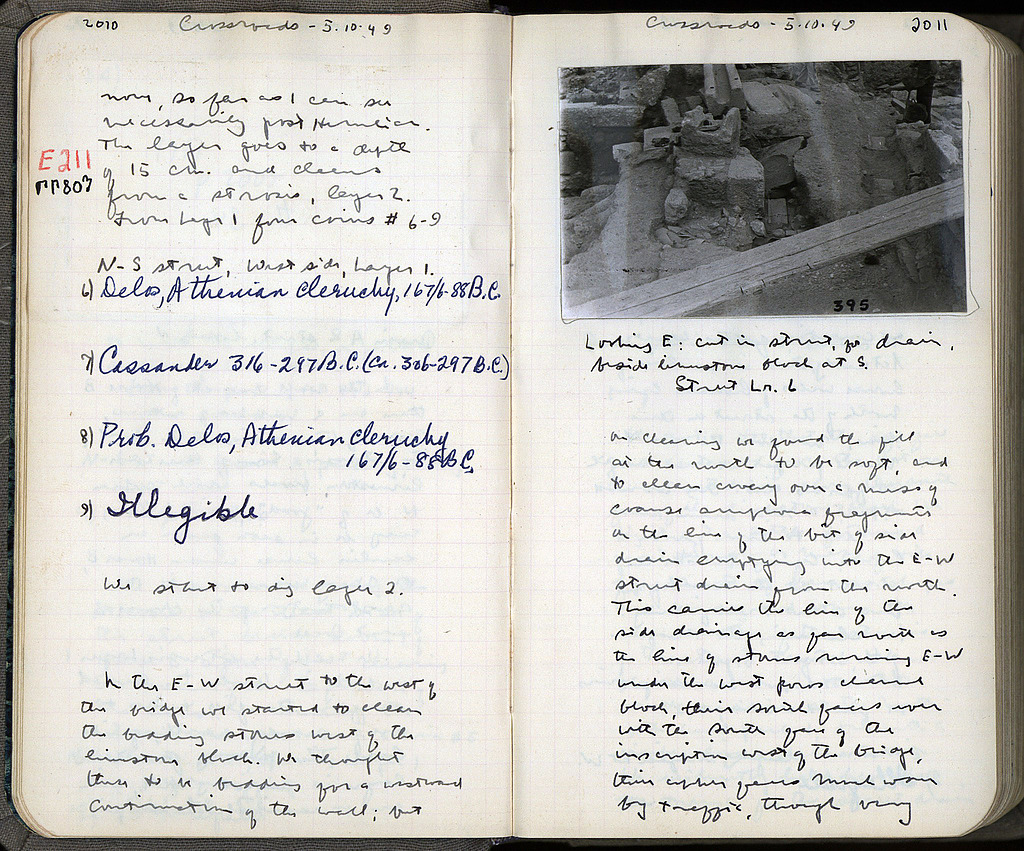 2010 Crossroads - 5.10.49
now, so far as I can see
necessarily post Herulian.
The layer goes to a depth
of 15 cm. and cleans
from a strosis, layer 2.
From layer 1 four coins # 6-9
E211
ΠΠ803
N-S street, west side, Layer 1.
6) Delos, Athenian cleruchy, 167/6-88 B.C.
7) Cassander 316-297 B.C. (Ca. 306-297 B.C.)
8) Prob. Delos, Athenian cleruchy
167/6-88 B.C.
9) Illegible
We start to dig layer 2.
In the E-W street to the west of
the bridge we started to clean
the bedding stones west of the
limestone block. We thought
these to be bedding for a westward
continuation of the wall; but
Crossroads - 5.10.49 2011
395
Looking E: cut in street, for drain,
beside limestone block at S.
Street Lr. 6
on cleaning we found the fill
at the north to be soft, and
to clean away over a mass of
coarse amphora fragments
on the line of the bit of side
drain emptying into the E-W
street drain from the north.
This carries the line of the
side drainage as far north as
the line of stones running E-W
under the west poros channel
block, their south faces even
with the south face of the
inscription west of the bridge,
their upper faces much worn
by traffic, though very